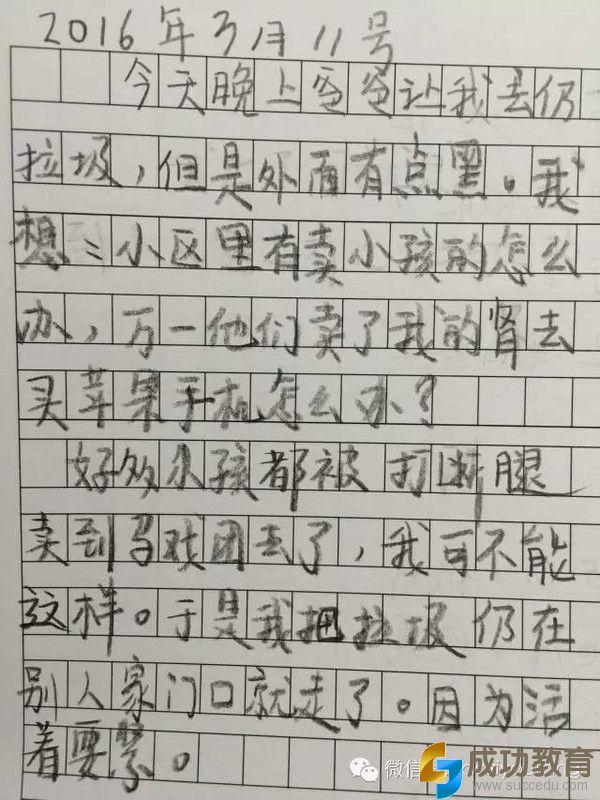 2016年3月11号
今天晚上爸爸让我去仍
垃圾，但是外面有点黑。我
想：小区里有卖小孩的怎么
办，万一他们卖了我的肾去
买苹果手机怎么办？
好多小孩都被打断腿
卖到马戏团去了，我可不能
这样。于是我把垃圾仍在
别人家门口就走了。因为活
着要紧。
微信
成功教育
www.succedu.com